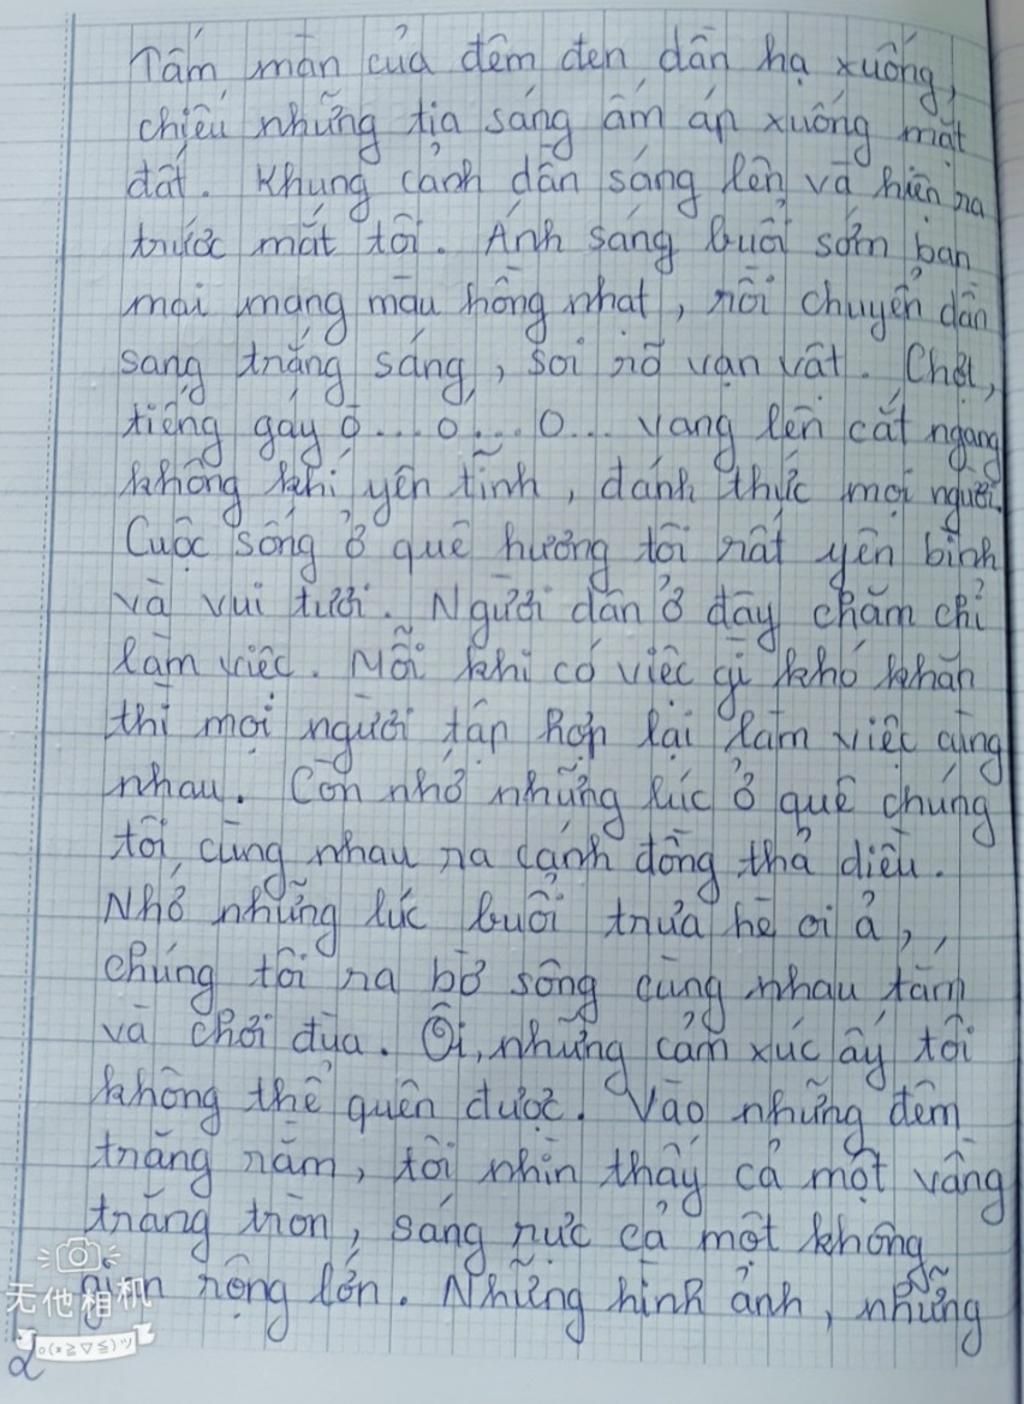 Tấm màn của đêm đen dần hạ xuống,
chiếu những tia sáng ấm áp xuống mặt
đất. Khung cảnh dần sáng lên và hiện ra
trước mắt tôi. Ánh sáng buổi sớm ban
mai mang màu hồng nhạt, rồi chuyển dần
sang trắng sáng, soi rõ vạn vật. Chợt,
tiếng gáy ò... ó... o... vang lên cắt ngang
không khí yên tĩnh, đánh thức mọi người.
Cuộc sống ở quê hương tôi rất yên bình
và vui tươi. Người dân ở đây chăm chỉ
làm việc. Mỗi khi có việc gì khó khăn
thì mọi người tập hợp lại làm việc cùng
nhau. Còn nhớ những lúc ở quê chúng
tôi, cùng nhau ra cánh đồng thả diều.
Nhớ những lúc buổi trưa hè oi ả,,
chúng tôi ra bờ sông cùng nhau tắm
và chơi đùa. Ôi, những cảm xúc ấy tôi
không thể quên được. Vào những đêm
trăng rằm, tôi nhìn thấy cả một vầng
trăng tròn, sáng rực cả một không
gian rộng lớn. Những hình ảnh, những
无他相机
o(*≧▽≦)ツ